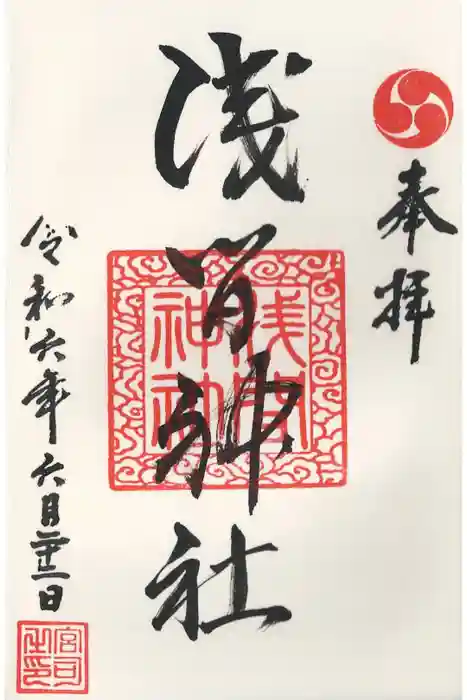 奉拝
浅間神社
浅間神社
令和六年六月二十二日
宮司之印